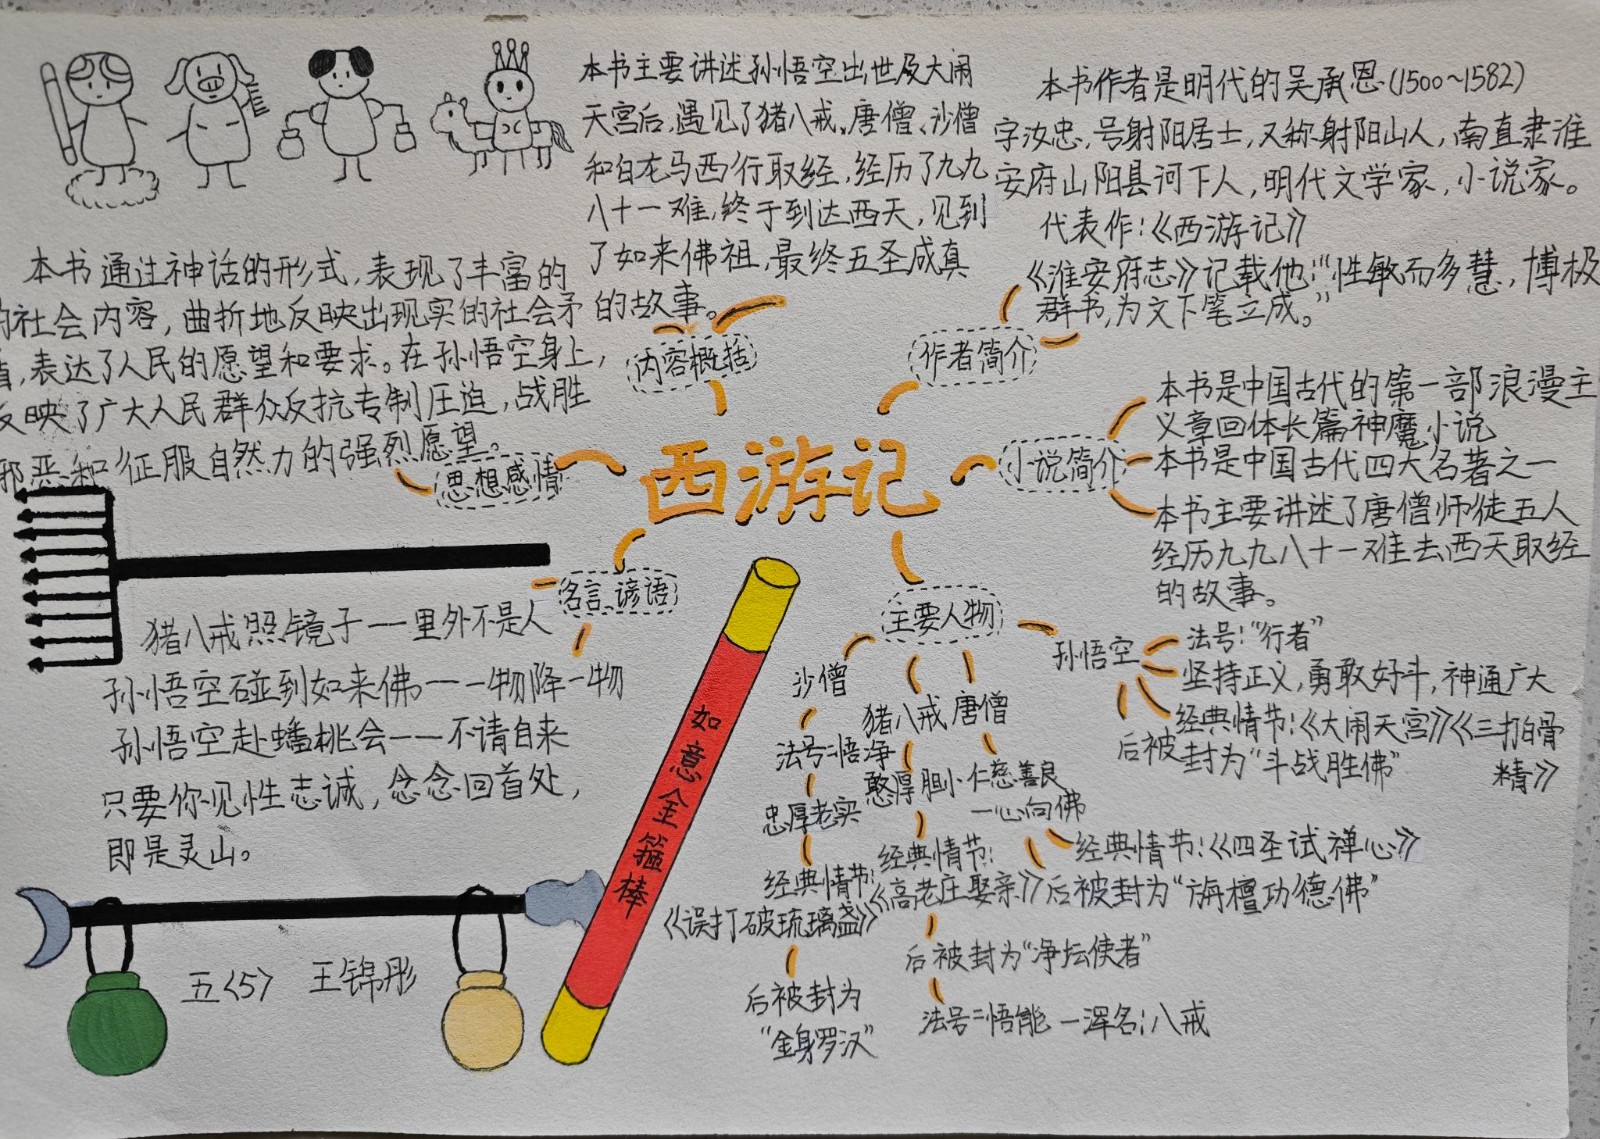 本书主要讲述孙悟空出世及大闹
天宫后,遇见了猪八戒、唐僧、沙僧
和白龙马西行取经,经历了九九
八十一难,终于到达西天,见到
了如来佛祖,最终五圣成真
的故事。
内容概括
本书作者是明代的吴承恩(1500~1582)
字汝忠,号射阳居士,又称射阳山人,南直隶淮
安府山阳县河下人,明代文学家,小说家。
代表作:《西游记》
《淮安府志》记载他:“性敏而多慧,博极
群书,为文下笔立成。”
作者简介
本书通过神话的形式,表现了丰富的
的社会内容,曲折地反映出现实的社会矛
盾,表达了人民的愿望和要求。在孙悟空身上,
反映了广大人民群众反抗专制压迫,战胜
邪恶和征服自然力的强烈愿望。
思想感情
西游记
小说简介
本书是中国古代的第一部浪漫主
义章回体长篇神魔小说
本书是中国古代四大名著之一
本书主要讲述了唐僧师徒五人
经历九九八十一难去西天取经
的故事。
名言、谚语
猪八戒照镜子——里外不是人
孙悟空碰到如来佛——一物降一物
孙悟空赴蟠桃会——不请自来
只要你见性志诚,念念回首处,
即是灵山。
主要人物
孙悟空
法号:“行者”
坚持正义,勇敢好斗,神通广大
经典情节:《大闹天宫》《三打白骨
精》
后被封为“斗战胜佛”
沙僧
法号:悟净
忠厚老实
经典情节:
《误打破琉璃盏》
后被封为
“金身罗汉”
猪八戒
憨厚胆小
经典情节:
《高老庄娶亲》
后被封为“净坛使者”
法号:悟能 一浑名:八戒
唐僧
仁慈善良
一心向佛
经典情节:《四圣试禅心》
后被封为“旃檀功德佛”
如意金箍棒
五<5> 王锦彤